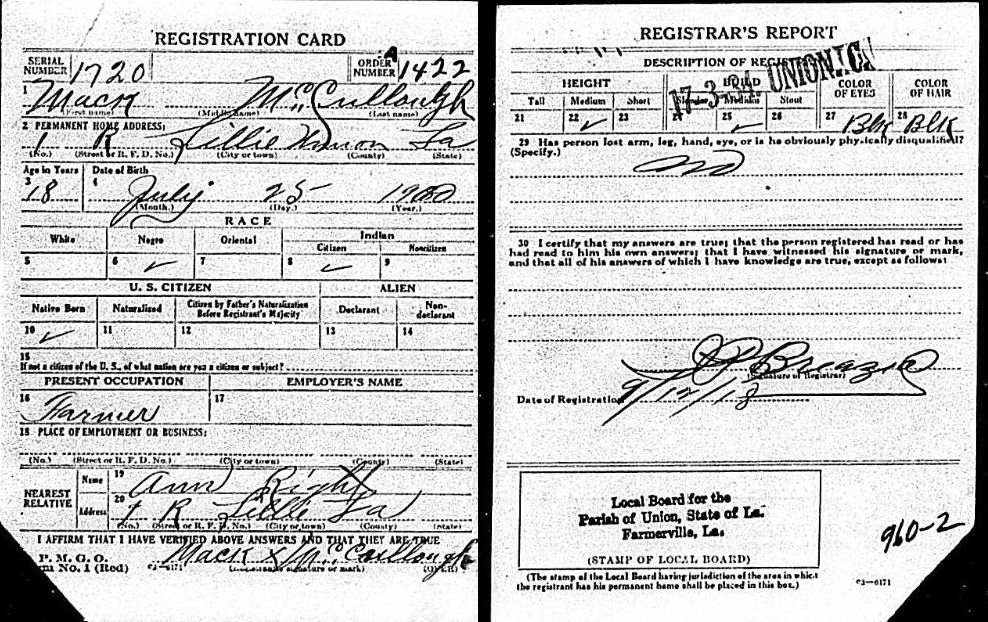 REGISTRATION CARD
SERIAL NUMBER 1720
ORDER NUMBER A 1422
1 Mack McCullough
(First name) (Middle name) (Last name)
2 PERMANENT HOME ADDRESS:
1 R Lillie Union La
(No.) (Street or R. F. D. No.) (City or town) (County) (State)
Age in Years Date of Birth
3 18 4 July 25 1900
(Month.) (Day.) (Year.)
RACE
White Negro Oriental Indian
Citizen Noncitizen
5 6 ✓ 7 8 ✓ 9
U. S. CITIZEN ALIEN
Native Born Naturalized Citizen by Father's Naturalization Before Registrant's Majority Declarant Non-declarant
10 ✓ 11 12 13 14
15
If not a citizen of the U. S., of what nation are you a citizen or subject?
PRESENT OCCUPATION EMPLOYER'S NAME
16 Farmer 17
18 PLACE OF EMPLOYMENT OR BUSINESS:
(No.) (Street or R. F. D. No.) (City or town) (County) (State)
NEAREST RELATIVE Name 19 Ann Right
Address 20 1 R Lillie La
(No.) (Street or R. F. D. No.) (City or town) (County) (State)
I AFFIRM THAT I HAVE VERIFIED ABOVE ANSWERS AND THAT THEY ARE TRUE
P. M. G. O.
m No. 1 (Red) 03—6171 Mack X McCullough
(Registrant's signature or mark) (OVER)
REGISTRAR'S REPORT
17-3-34 UNION, LA
DESCRIPTION OF REGISTRANT
HEIGHT BUILD COLOR OF EYES COLOR OF HAIR
Tall Medium Short Slender Medium Stout
21 22 ✓ 23 24 25 ✓ 26 27 Blk 28 Blk
29 Has person lost arm, leg, hand, eye, or is he obviously physically disqualified?
(Specify.)
no
30 I certify that my answers are true; that the person registered has read or has
had read to him his own answers; that I have witnessed his signature or mark,
and that all of his answers of which I have knowledge are true, except as follows:
(Signature of Registrar)
Date of Registration 9/12/18
Local Board for the
Parish of Union, State of La.
Farmerville, La.
(STAMP OF LOCAL BOARD)
960-2
(The stamp of the Local Board having jurisdiction of the area in which
the registrant has his permanent home shall be placed in this box.)
03—6171